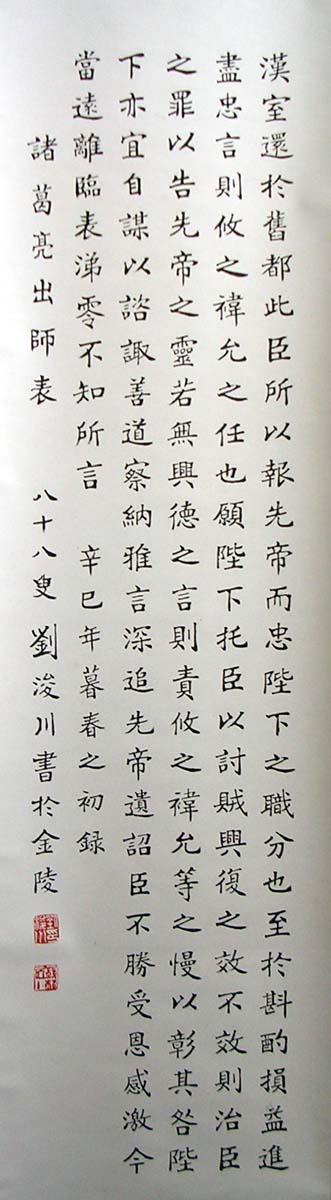 漢室還於舊都此臣所以報先帝而忠陛下之職分也至於斟酌損益進
盡忠言則攸之禕允之任也願陛下托臣以討賊興復之效不效則治臣
之罪以告先帝之靈若無興德之言則責攸之禕允等之慢以彰其咎陛
下亦宜自謀以諮諏善道察納雅言深追先帝遺詔臣不勝受恩感激今
當遠離臨表涕零不知所言 辛巳年暮春之初録
諸葛亮出師表 八十八叟劉浚川書於金陵